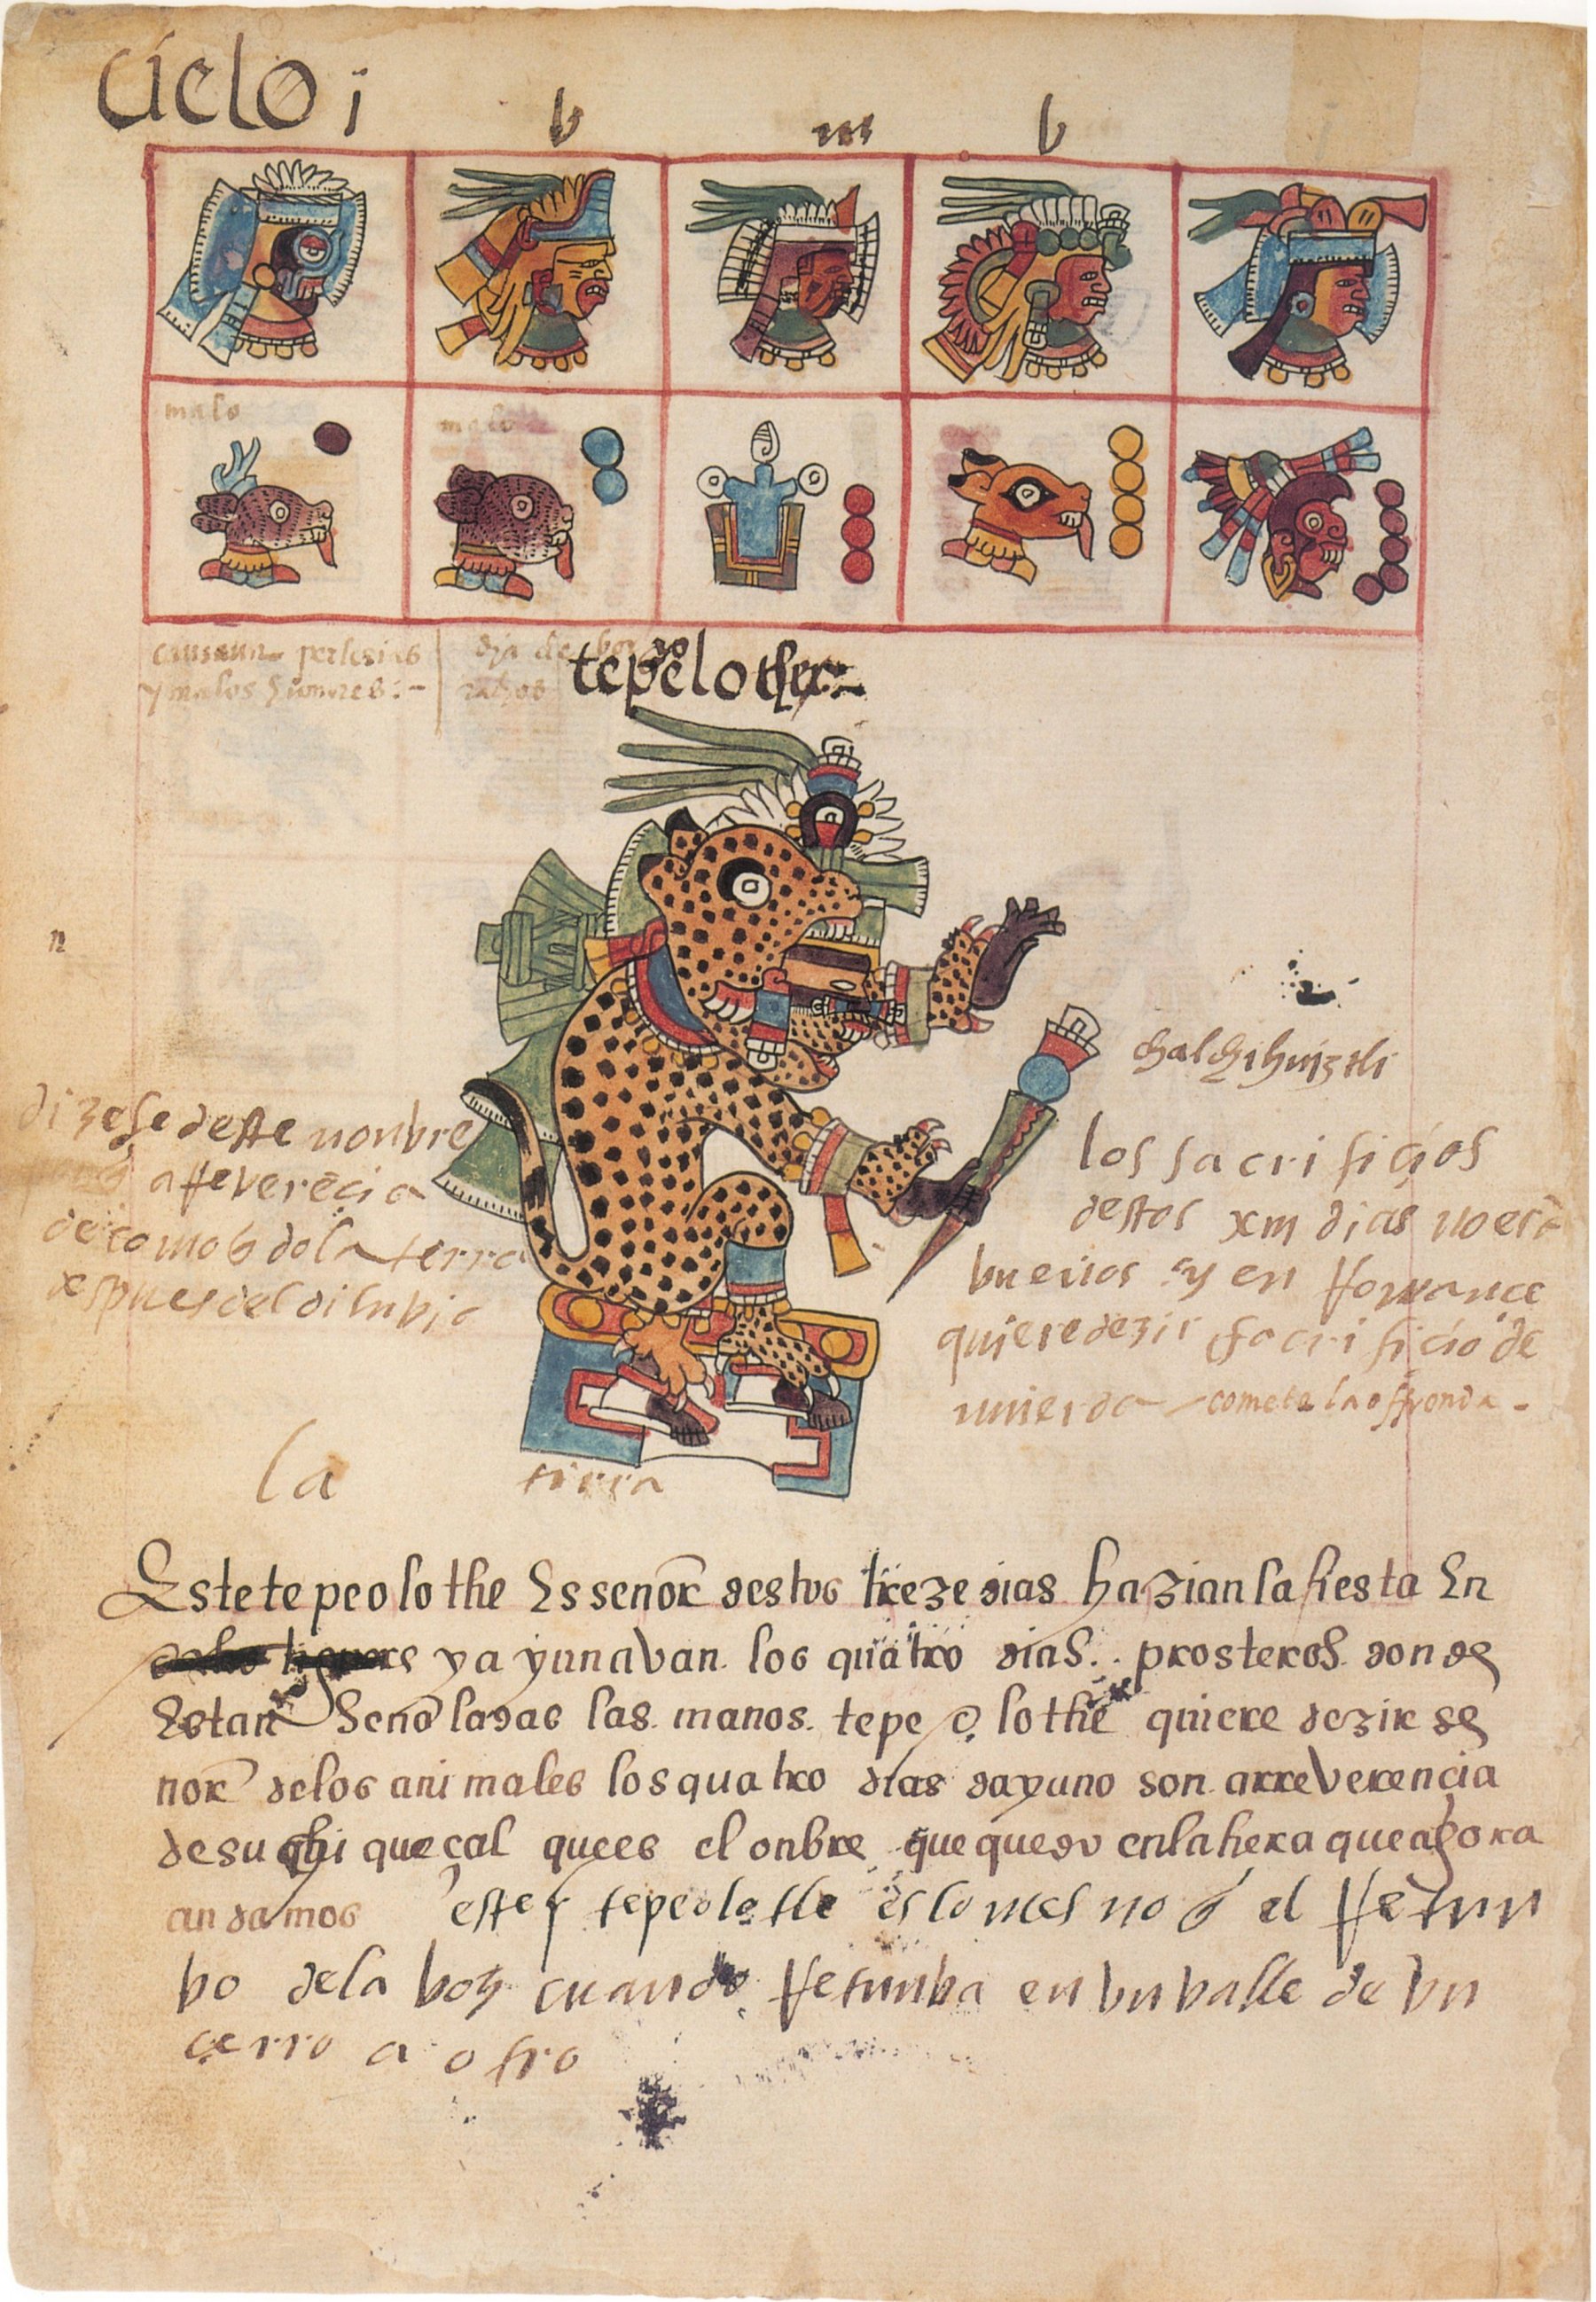 cielo i
b m b
malo
malo
causaua perlesias
y malos humores :-
dia de
tepelothec
n
chalchihuiztli
dizese deste nonbre
a rreverēcia
de como q̄do la terra
despues del dilubio
los sacrificios
destos xiii dias no erā
buenos y en rromance
quiere dezir sacrificio de
mierda cometa la offrenda -
la tierra
Este tepeolothe Es senor destos treze dias hazian la fiesta En
y ayunavan los quatro dias prosteros donde
Estan Senoladas las manos. tepe o lothe quiere dezir se
nor delos animales los quatro dias dayuno son arreverencia
de suchi quecal quees el onbre que quedo en la tiera que agora
andamos este tepeolotle es lo mes no q̄ el rretun
bo dela boz cuando rretunba en un valle de un
cerro a otro